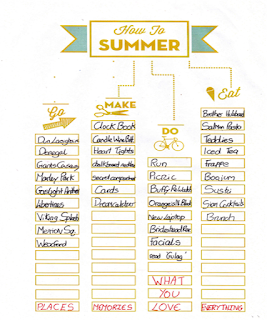 How To
SUMMER
Go
Dun Laoghaire
Donegal
Giants Causeway
Marley Park
Gaslight Anthem
Libertines
Viking Splash
Merrion Sq.
Wexford
PLACES
MAKE
Clock Book
Candle Wine Bott
Heart Tights
chalkboard
secret compartment
Cards
Dreamcatcher
MEMORIES
DO
Run
Picnic
Buffy Re-Watch
New Laptop
Brideshead Rev
Facials
read "Gulag"
WHAT
YOU
LOVE
Eat
Brother Hubbard
Salmon Pasta
Teddies
Iced Tea
Frappe
Boojum
Sushi
Brunch
EVERYTHING